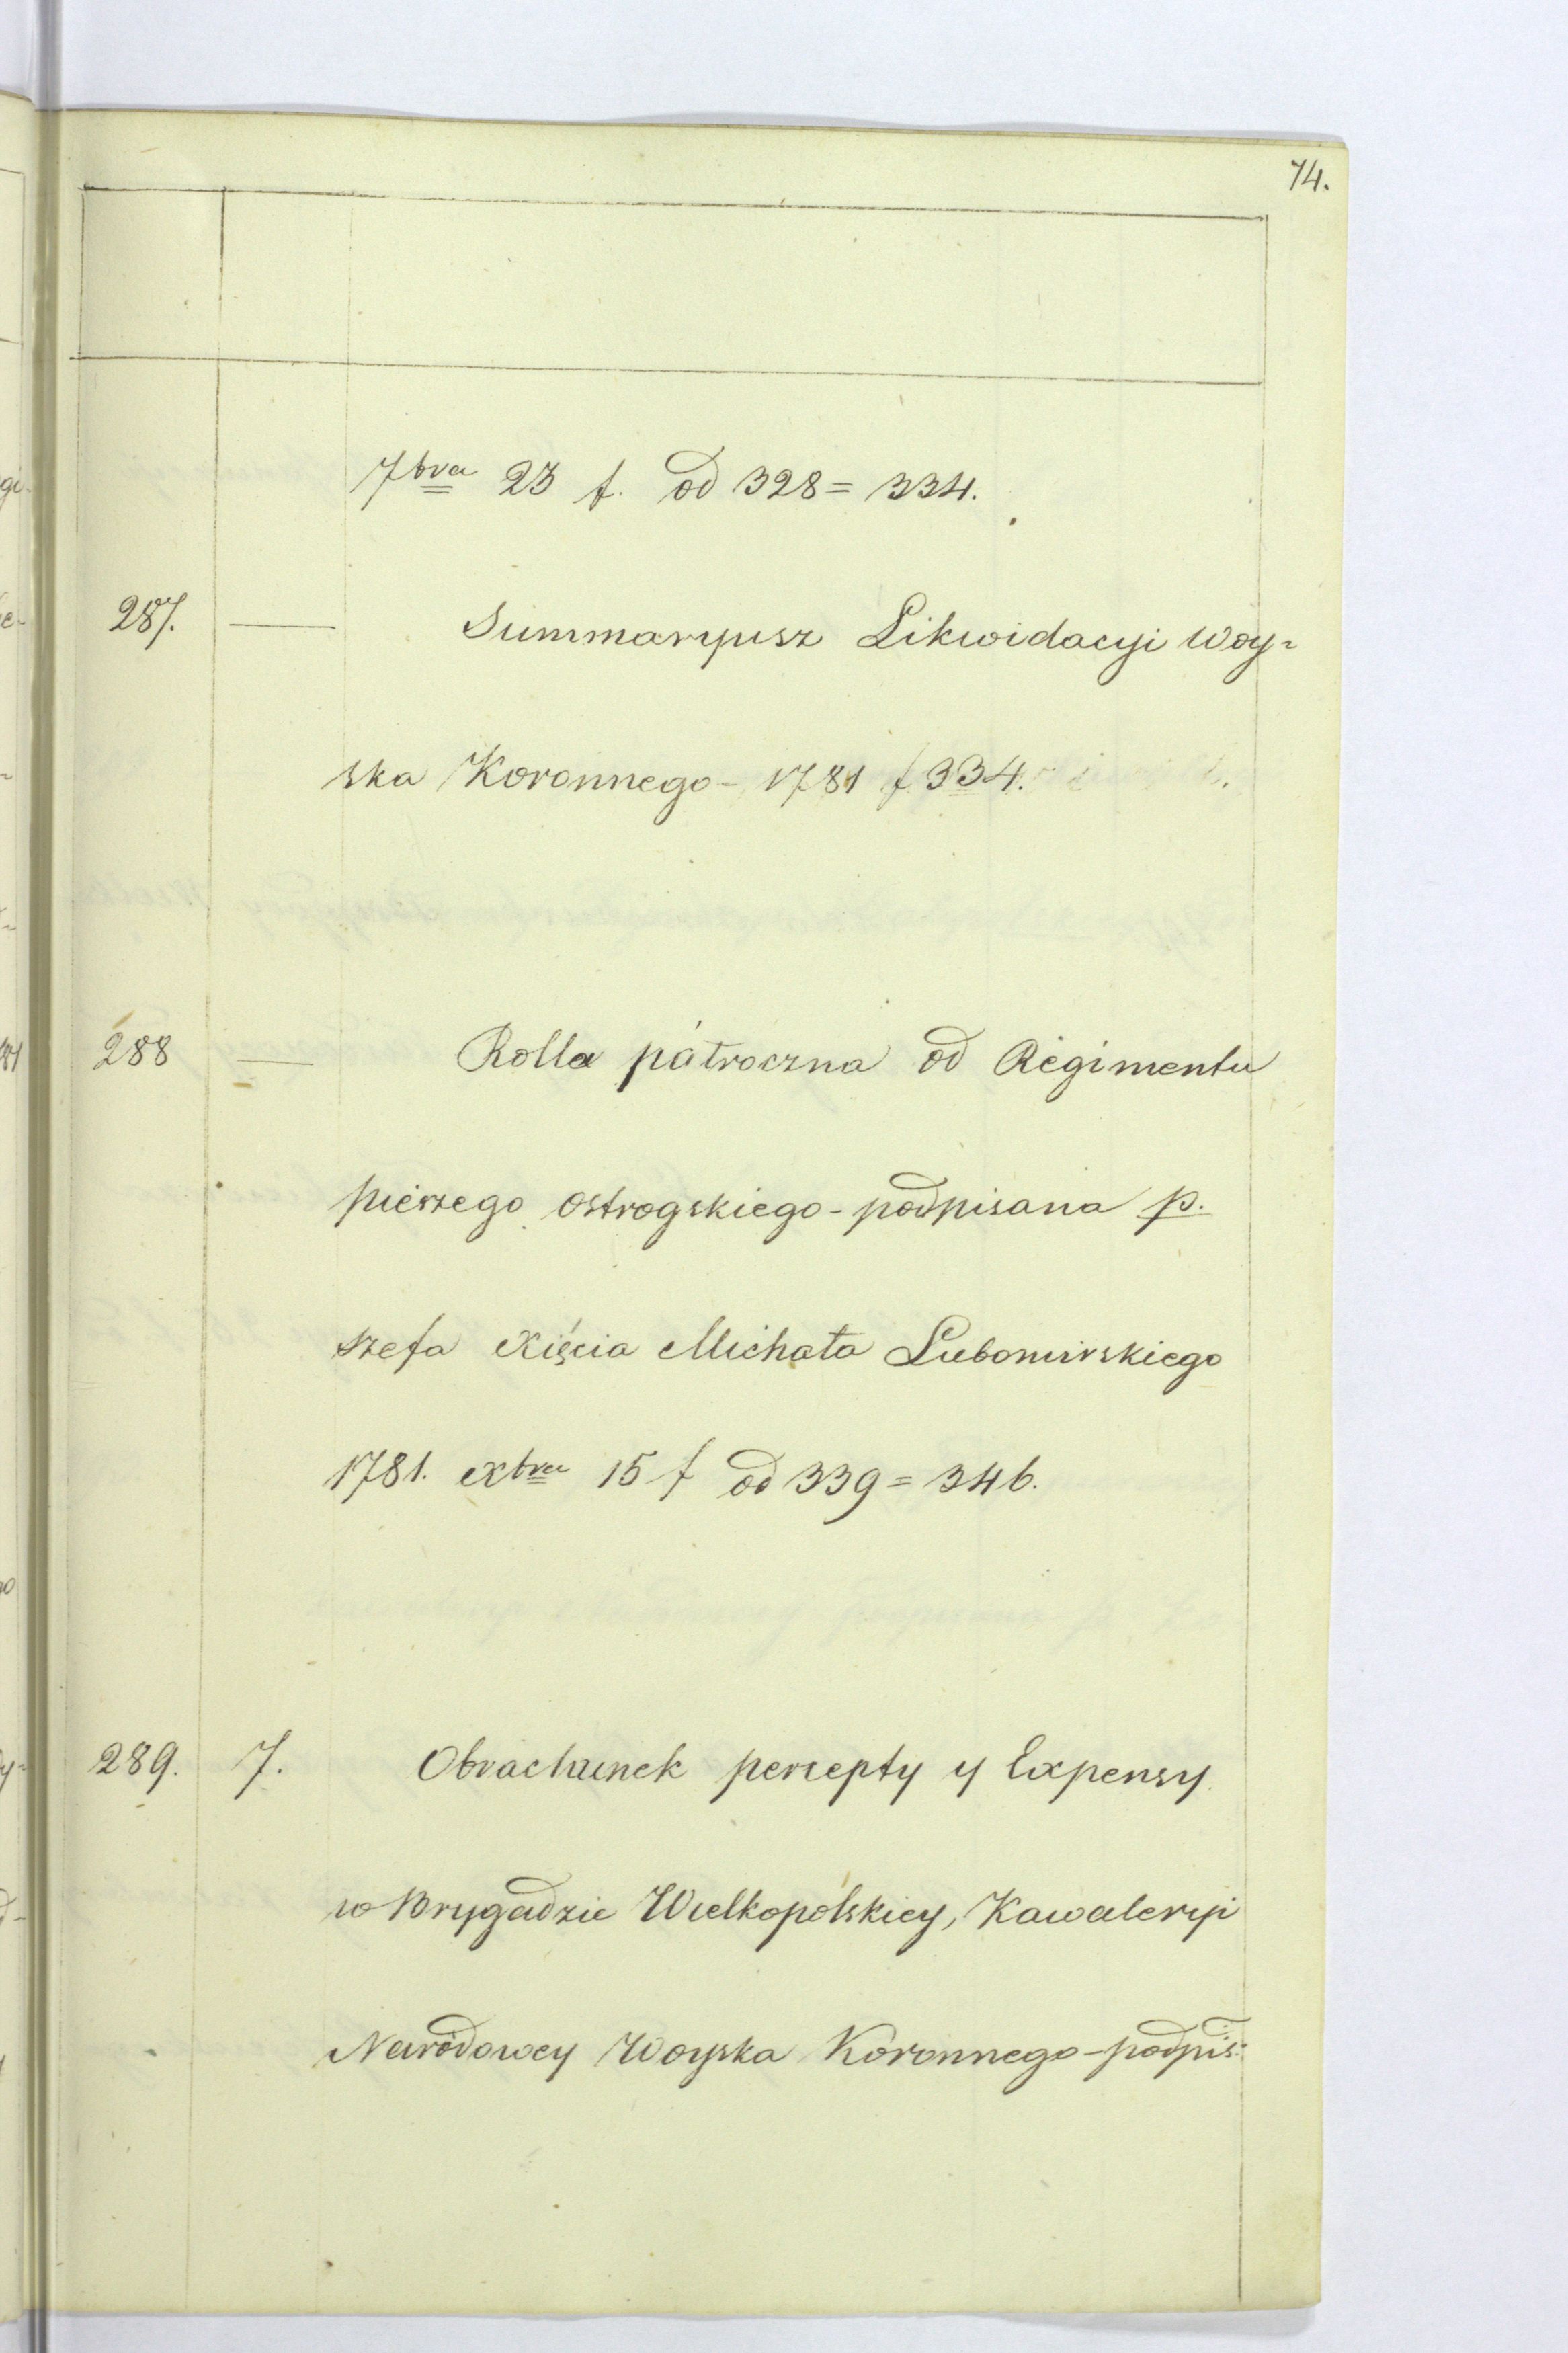 74.
7bra 23 f. od 328 = 334.
287. — Summaryusz Likwidacyi Woy=
ska Koronnego - 1781 f 334.
288 — Rolla pátroczna od Regimentu
pieszego Ostrogskiego - podpisana p.
szefa Xięcia Michała Lubomirskiego
1781. Xbra 15 f od 339 = 346.
289. 7. Obrachunek percepty y Expensy
w Brygadzie Wielkopolskiey, Kawaleryi
Narodowey Woyska Koronnego - podpis: